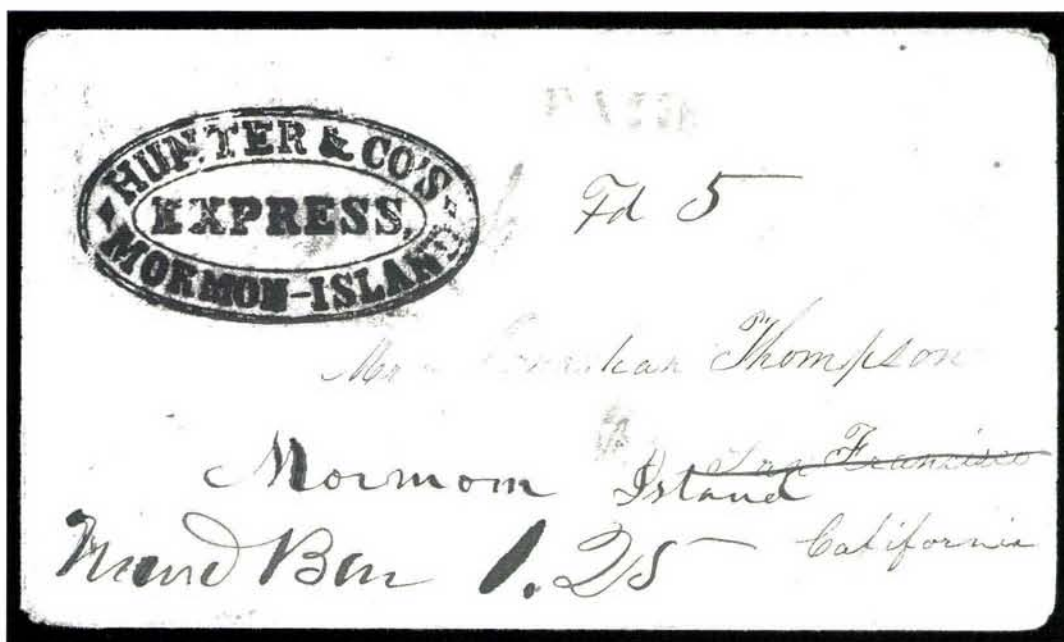 PAID
HUNTER & CO'S
EXPRESS.
MORMON-ISLAND
Fd 5
Thompson
San Francisco
Mormom Island
California
1.25